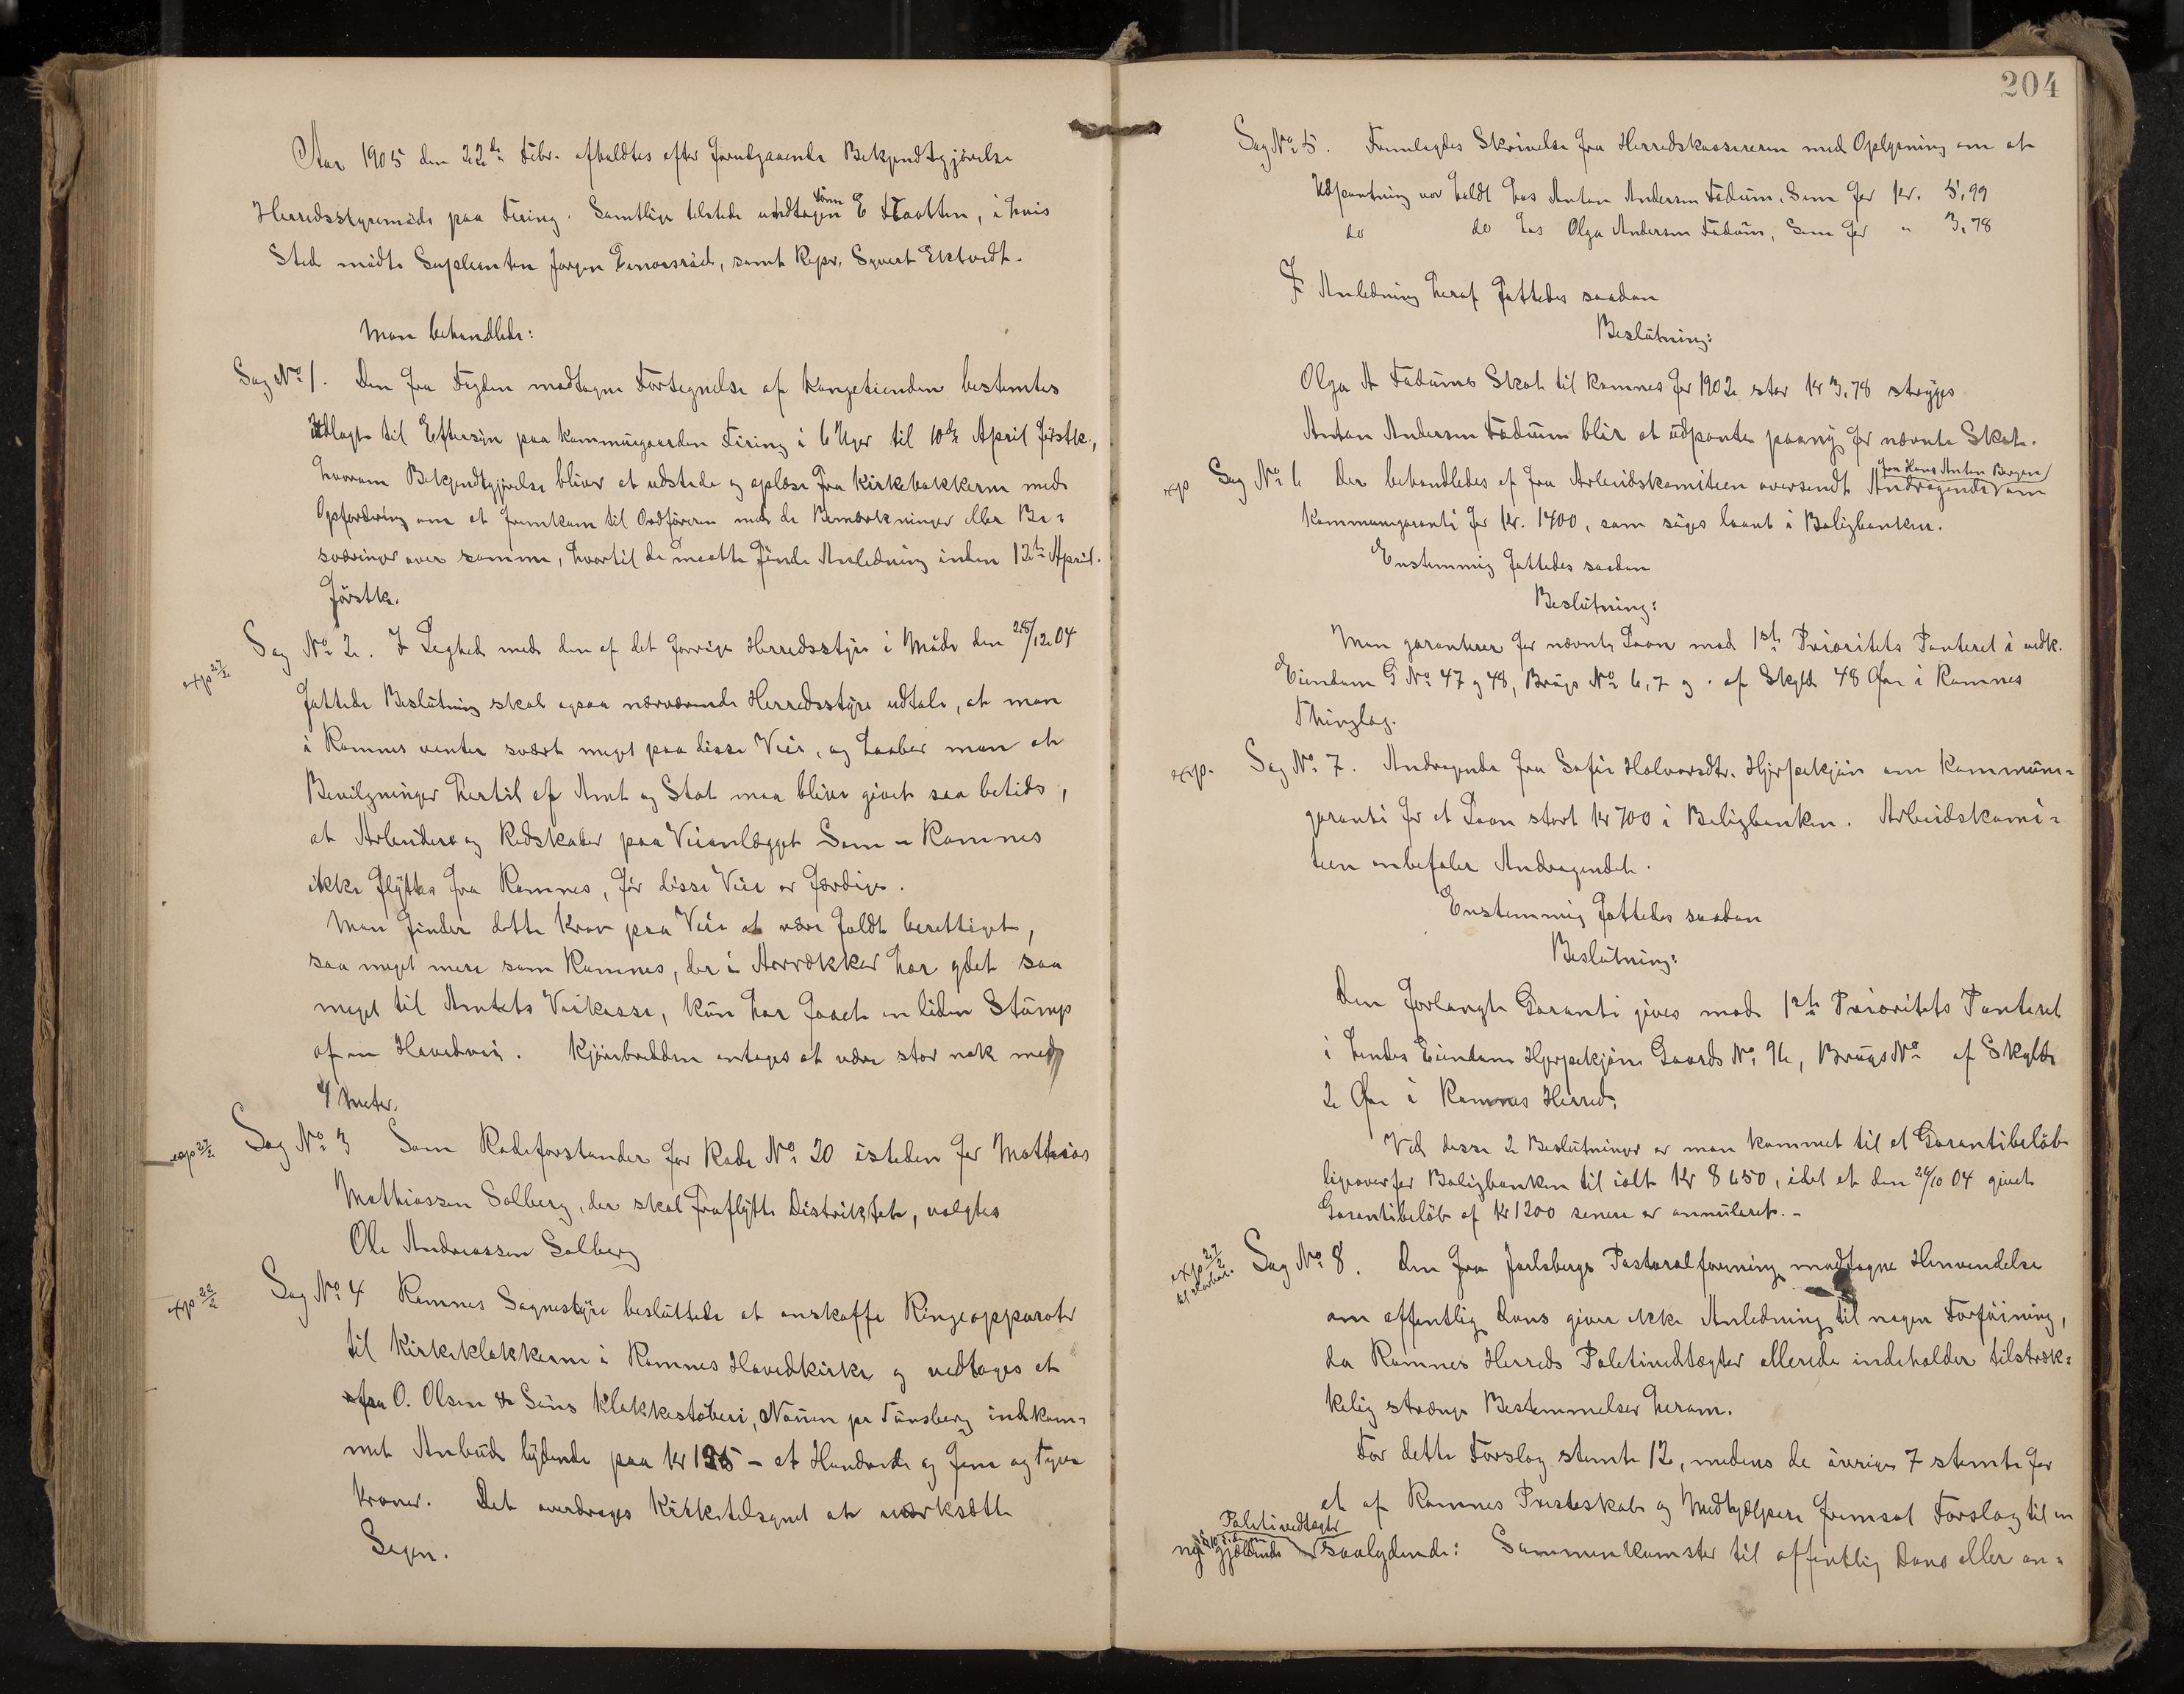 Aar 1905 den 22de Febr. afholdtes efter forudgaaende Bekjendtgjörelse
Herredsstyremöde paa Firing. Samtlige tilstede undtagen E Traatten, i hvis
Sted mödte Suplemten Jörgen, samt Repr. Syvert Ektvedt.
Man behandlede:
Sag No 1. Den fra Fogden modtagne Fortegnelse af Kongetienden bestemtes
udlagt til Eftersyn paa Kommunegaarden Firing i 6 Uger til 10de April förstk.,
hvorom Bekjendtgjörelse bliver at udstede og oplæse fra Kirkebakkerne med
Opfordring om at fremkom til Ordföreren med de Bemærkninger eller Be=
sværinger over samme, hvortil de maatte finde Anledning inden 12te April.
förstk.
exp 27/2
Sag No 2. I Lighed med den af det forrige Herredsstyre i Möde den 28/12 04
fattede Beslutning skal ogsaa nærværende Herredsstyre udtale, at man
i Ramnes venter svært meget paa disse Veie, og haaber man at
Bevilgninger hertil af Amt og Stat maa blive givet saa betids,
at Arbeidere og Redskaber paa Veianlægget Sem - Ramnes
ikke flyttes fra Ramnes, för disse Veie er færdige.
Man finder dette Krav paa Veie at være fuldt berettiget,
saa meget mere som Ramnes, der i Aarrækker har ydet saa
meget til Amtets Veikasse, kun har faaet en liden Stump
af en Hovedvei. Kjörebredden antages at være stor nok med
4 Meter.
exp 27/2
Sag No 3 Som Rodeforstander for Rode No 20 isteden for Mathias
Mathiassen Solberg, der skal fraflytte Distriktet, valgtes
Ole Andreassen Solberg
exp 22/2
Sag No 4 Ramnes Sognestyre besluttede at anskaffe Ringeapparater
til Kirkeklokkerne i Ramnes Hovedkirke og vedtages et
fra O. Olsen & Söns Klokkestöberi, Nauen pr Tönsberg indkom=
met Anbud lydende paa Kr 125 - et Hundrede og fem og Tyve
Kroner. Det overdrages Kirketilsynet at iværksætte
Sagen.
204
Sag No 5. Fremlagdes Skrivelse fra Herredskassereren med Oplysning om at
Udpantning var holdt hos Anton Andersen Fadum, Sem for Kr. 5,99
do do hos Olga Andersen Fadum, Sem for " 3,78
I Anledning heraf fattedes saadan
Beslutning:
Olga A Fadums Skat til Ramnes for 1902 stor Kr 3,78 stryges
Anton Andersen Fadum blir at udpante paany for nævnte Skat.
exp
fra Hans Anton Bergan
Sag No 6 Der behandledes et fra Arbeidskomiteen oversendt Andragende om
Kommunegaranti for Kr. 1400, som söges laant i Boligbanken.
Enstemmig fattedes saadan
Beslutning:
Man garanterer for nævnte Laan mod 1ste Prioritets Panteret i vedk.
Eiendom G No 47 og 48, Brugs No 6, 7 og . af Skyld 48 Öre i Ramnes
Thinglag.
exp.
Sag No 7. Andragende fra Sofie Halvorsdtr. Hjerpekjön om Kommune=
garanti for et Laan stort Kr 700 i Boligbanken. Arbeidskomi=
teen anbefaler Andragendet.
Enstemmig fattedes saadan
Beslutning:
Den forlangte Garanti gives mod 1ste Prioritets Panteret
i hendes Eiendom Hjerpekjön Gaards No 96, Brugs No af Skyld
2 Öre i Ramnes Herred.
Ved disse 2 Beslutninger er man kommet til et Garantibelöb
ligeoverfor Boligbanken til ialt Kr 8650, idet et den 26/10 04 givet
Garantibelöb af Kr 1200 senere er annuleret. -
exp 27/2
Sag No 8. Den fra Jarlsbergs Pastoralforening modtagne Henvendelse
om offentlig Dans giver ikke Anledning til nogen Forföining,
da Ramnes Herreds Politivedtægter allerede indeholder tilstræk=
kelig strenge Bestemmelser herom.
For dette Forslag stemte 12, medens de övrige 7 stemte for
et af Ramnes Presteskab og Medhjælpere fremsat Forslag til en
Politivedtægt
ny gjældende saalydende: Sammenkomster til offentlig Dans eller an=